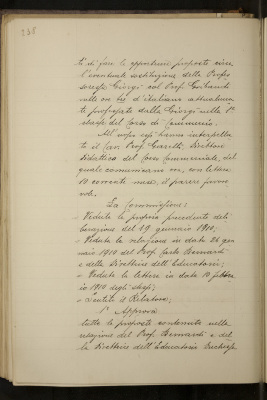 238
ti di fare le opportune proposte circa
l'eventuale sostituzione della Profes
soressa Giorgi col Prof.
nelle ore tre d'italiano attualmen
te professate dalla Giorgi nella 1ª
classe del Corso di Commercio.
All'uopo essi hanno interpella
to il Cav. Prof. Direttore
Didattico del Corso Commerciale, del
quale comunicano ora, con lettera
10 corrente mese, il parere favore
vole.
La Commissione:
- Veduta la propria precedente deli
berazione del 29 gennaio 1910;
- Veduta la relazione in data 26 gen
naio 1910 del Prof. Carlo Bernardi
e della Direttrice dell'Educatorio;
- Veduta la lettera in data 10 febbra
io 1910 degli stessi;
- Sentito il Relatore;
1° Approva
tutte le proposte contenute nella
relazione del Prof. Bernardi e del
la Direttrice dell'Educatorio Duchessa